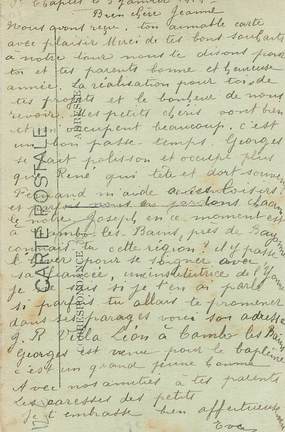 Bien chère Jeanne
Nous avons reçu ton aimable carte
avec plaisir Merci de tes bons souhaits
à notre tour nous te disons pour
toi et tes parents bonne et heureuse
année. La réalisation pour toi, de
tes projets et le bonheur de nous
revoir. Les petits chéris vont bien
et occupent beaucoup. c'est
un bon passe-temps. Georges
se fait polisson et occupe plus
que René qui tète et dort
Fernand m'aide
et parfois nous en parlons
le notre. Joseph en ce moment est
à Cambo-les-Bains, près de Bayonne
connais tu cette région? il y passe
l'hiver pour se soigner avec
sa fiancée, une institutrice de l'Yonne
je ne sais si je t'en ai parlé
si parfois tu allais te promener
dans ces parages voici son adresse
g. R Villa Léon à Cambo les Bains
Georges est venu pour le baptême
c'est un grand jeune homme
Avec nos amitiés à tes parents
Les caresses des petits
Je t'embrasse bien affectueusement
Eva
CARTE POSTALE
CORRESPONDANCE
ADRESSE